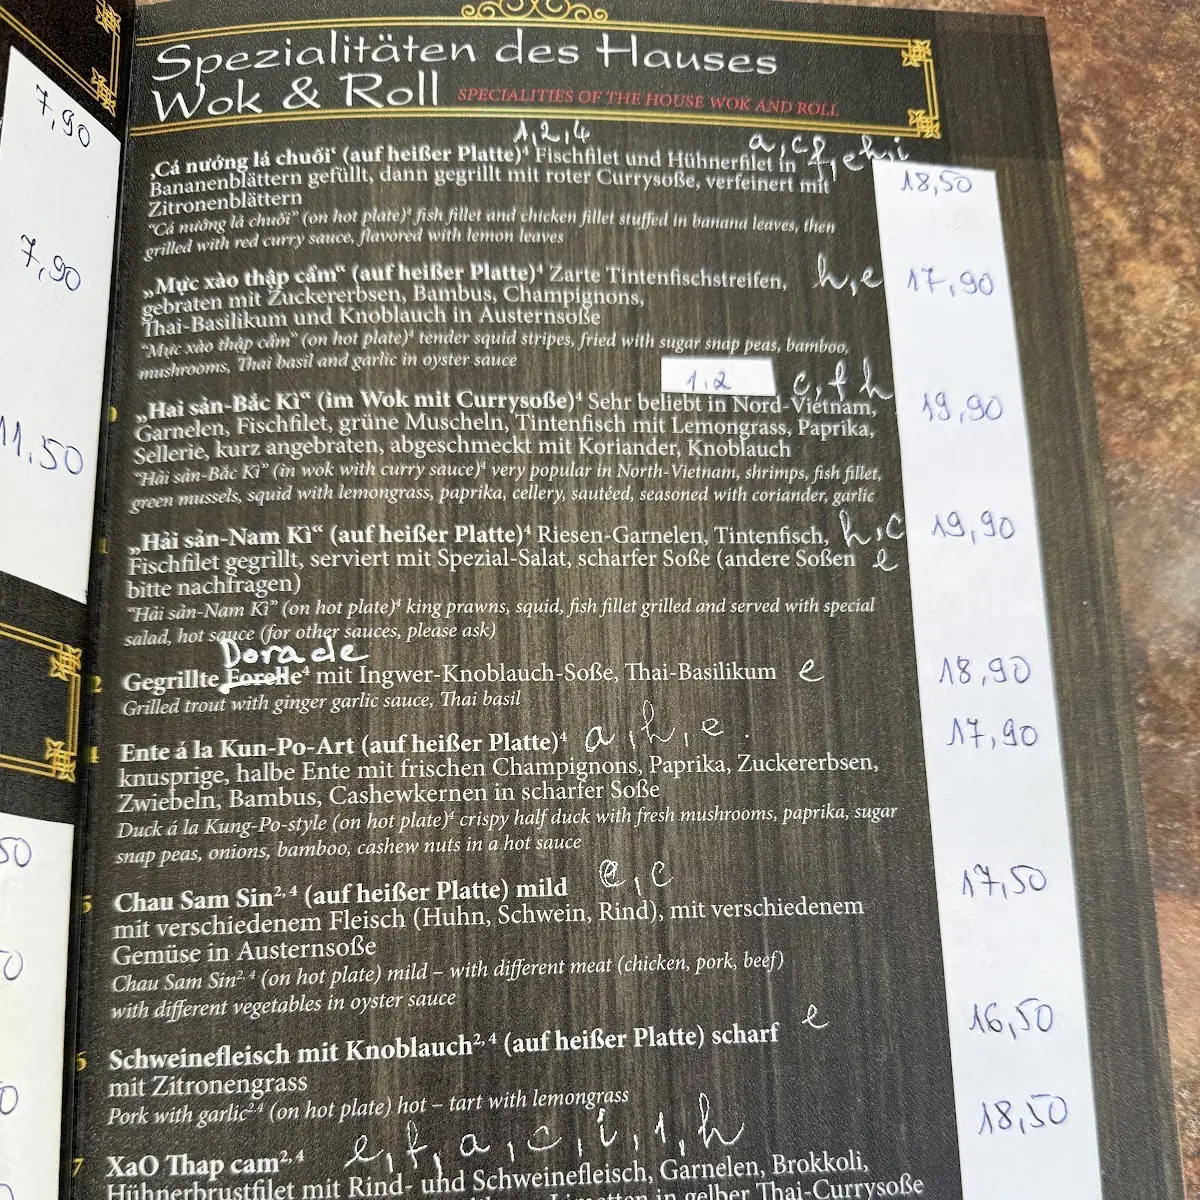 7,90
7,90
11,50
50
Spezialitäten des Hauses
Wok & Roll SPECIALITIES OF THE HOUSE WOK AND ROLL
1,2,4 a,c,f,e,h,i
‚Cá nướng lá chuối‘ (auf heißer Platte)⁴ Fischfilet und Hühnerfilet in
Bananenblättern gefüllt, dann gegrillt mit roter Currysoße, verfeinert mit 18,50
Zitronenblättern
"Cá nướng lá chuối" (on hot plate)⁴ fish fillet and chicken fillet stuffed in banana leaves, then
grilled with red curry sauce, flavored with lemon leaves
„Mực xào thập cẩm“ (auf heißer Platte)⁴ Zarte Tintenfischstreifen, h,e 17,90
gebraten mit Zuckererbsen, Bambus, Champignons,
Thai-Basilikum und Knoblauch in Austernsoße
"Mực xào thập cẩm" (on hot plate)⁴ tender squid stripes, fried with sugar snap peas, bamboo,
mushrooms, Thai basil and garlic in oyster sauce
1,2 c,f h
„Hai sản-Bắc Kì“ (im Wok mit Currysoße)⁴ Sehr beliebt in Nord-Vietnam, 19,90
Garnelen, Fischfilet, grüne Muscheln, Tintenfisch mit Lemongrass, Paprika,
Sellerie, kurz angebraten, abgeschmeckt mit Koriander, Knoblauch
"Hải sản-Bắc Kì" (in wok with curry sauce)⁴ very popular in North-Vietnam, shrimps, fish fillet,
green mussels, squid with lemongrass, paprika, cellery, sautéed, seasoned with coriander, garlic
„Hải sản-Nam Kì“ (auf heißer Platte)⁴ Riesen-Garnelen, Tintenfisch, h,c 19,90
Fischfilet gegrillt, serviert mit Spezial-Salat, scharfer Soße (andere Soßen e
bitte nachfragen)
"Hải sản-Nam Kì" (on hot plate)⁴ king prawns, squid, fish fillet grilled and served with special
salad, hot sauce (for other sauces, please ask)
Dorade
2 Gegrillte Forelle⁴ mit Ingwer-Knoblauch-Soße, Thai-Basilikum e 18,90
Grilled trout with ginger garlic sauce, Thai basil
4 Ente á la Kun-Po-Art (auf heißer Platte)⁴ a,h,e. 17,90
knusprige, halbe Ente mit frischen Champignons, Paprika, Zuckererbsen,
Zwiebeln, Bambus, Cashewkernen in scharfer Soße
Duck á la Kung-Po-style (on hot plate)⁴ crispy half duck with fresh mushrooms, paprika, sugar
snap peas, onions, bamboo, cashew nuts in a hot sauce
5 Chau Sam Sin²·⁴ (auf heißer Platte) mild e,c 17,50
mit verschiedenem Fleisch (Huhn, Schwein, Rind), mit verschiedenem
Gemüse in Austernsoße
Chau Sam Sin²·⁴ (on hot plate) mild – with different meat (chicken, pork, beef)
with different vegetables in oyster sauce
6 Schweinefleisch mit Knoblauch²·⁴ (auf heißer Platte) scharf e 16,50
mit Zitronengrass
Pork with garlic²·⁴ (on hot plate) hot – tart with lemongrass
e,f,a,c,i,1,h 18,50
7 XaO Thap cam²·⁴
Hühnerbrustfilet mit Rind- und Schweinefleisch, Garnelen, Brokkoli,
Limetten in gelber Thai-Currysoße